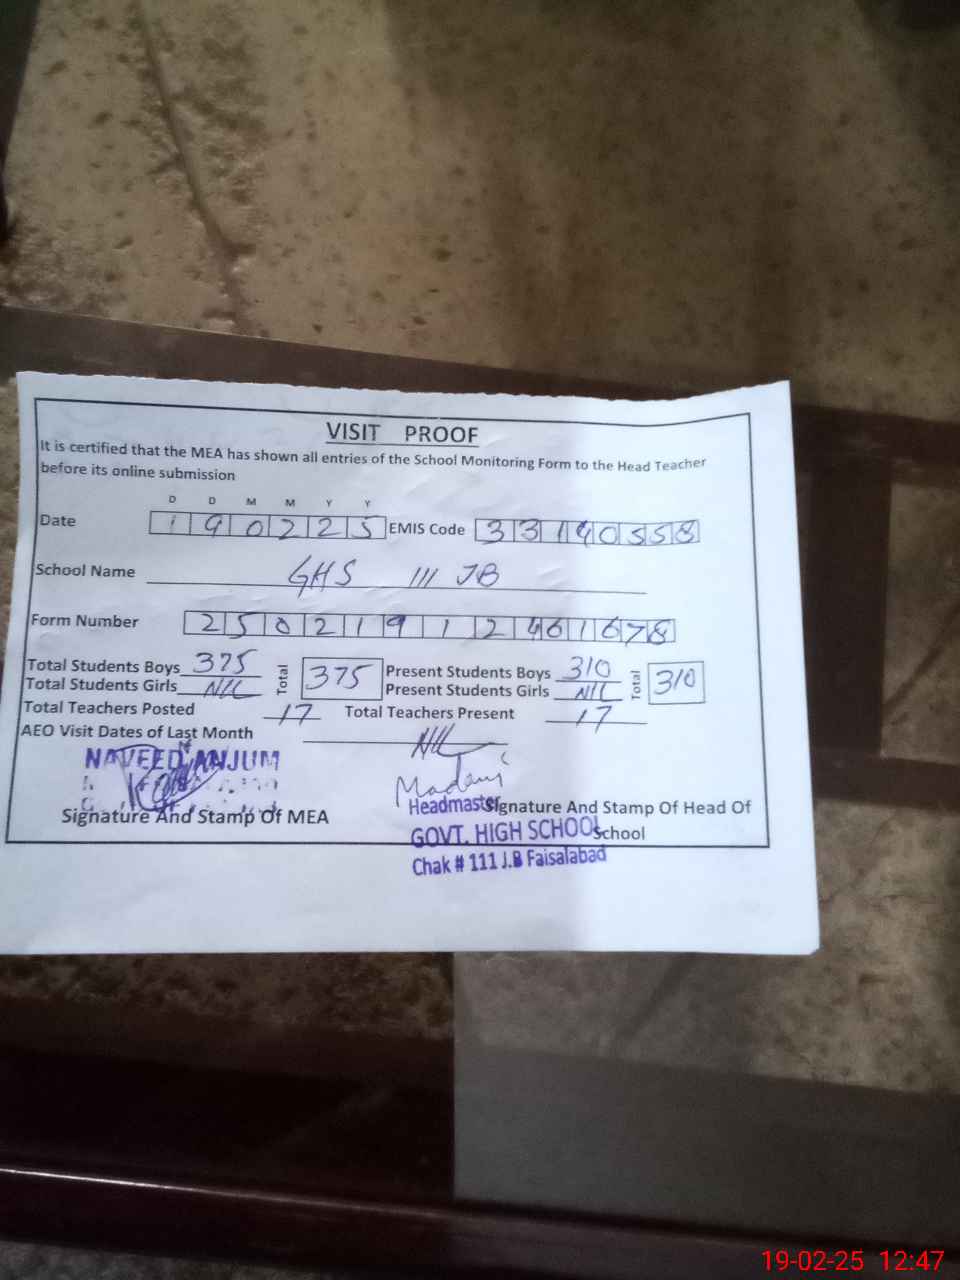 VISIT PROOF
It is certified that the MEA has shown all entries of the School Monitoring Form to the Head Teacher
before its online submission
D D M M Y Y
Date 190225 EMIS Code 33140558
School Name GHS 111 JB
Form Number 25021912461678
Total Students Boys 375 Total 375 Present Students Boys 310 Total 310
Total Students Girls NIL Present Students Girls NIL
Total Teachers Posted 17 Total Teachers Present 17
AEO Visit Dates of Last Month Nil
NAVEED ANJUM
Signature And Stamp Of MEA
Headmaster Signature And Stamp Of Head Of
GOVT. HIGH SCHOOL School
Chak # 111 J.B Faisalabad
19-02-25 12:47